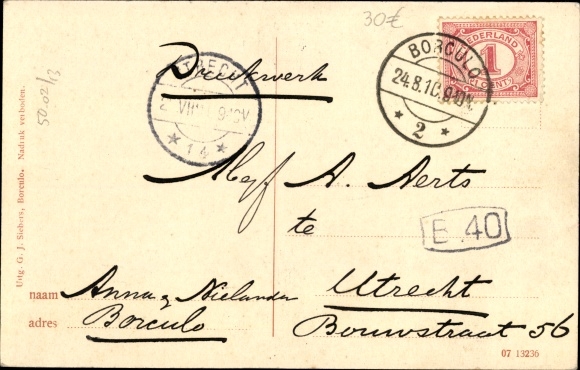 30€
NEDERLAND
1
CENT
BORCULO
24.8.10.
2
UTRECHT
VIII
14
Drukwerk
50.02/13
Mej A. Aerts
te
B.40
Utrecht
Bouwstraat 56
naam Anna Nielander
adres Borculo
Uitg. G. J. Siebers, Borculo. Nadruk verboden.
07 13236